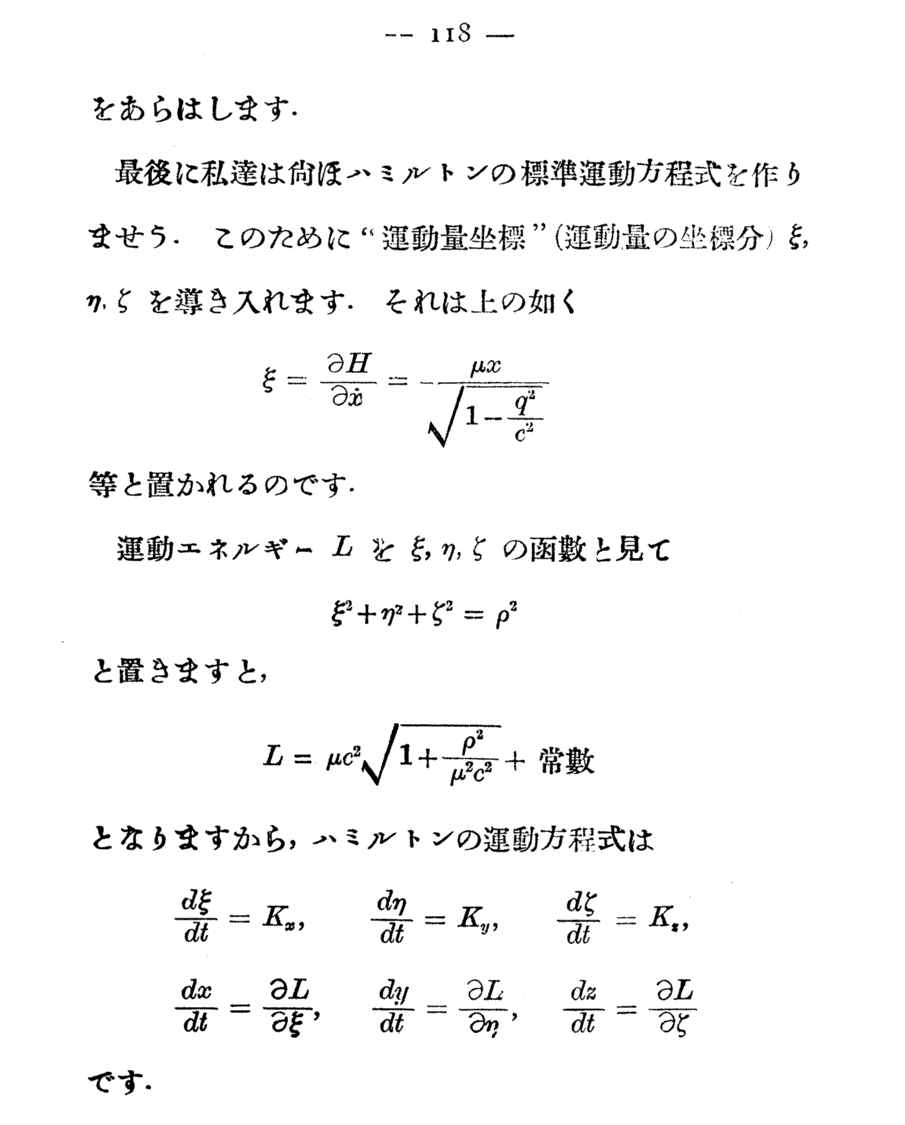 -- 118 —
をあらはします.
最後に私達は尙ほハミルトンの標準運動方程式を作り
ませう. このために“運動量坐標”(運動量の坐標分) ξ,
η, ζ を導き入れます. それは上の如く
ξ = ∂H/∂ẋ = μx/√(1 − q²/c²)
等と置かれるのです.
運動エネルギー L を ξ, η, ζ の函數と見て
ξ²+η²+ζ² = ρ²
と置きますと,
L = μc²√(1+ρ²/μ²c²) + 常數
となりますから, ハミルトンの運動方程式は
dξ/dt = Kx, dη/dt = Ky, dζ/dt = Kz,
dx/dt = ∂L/∂ξ, dy/dt = ∂L/∂η, dz/dt = ∂L/∂ζ
です.